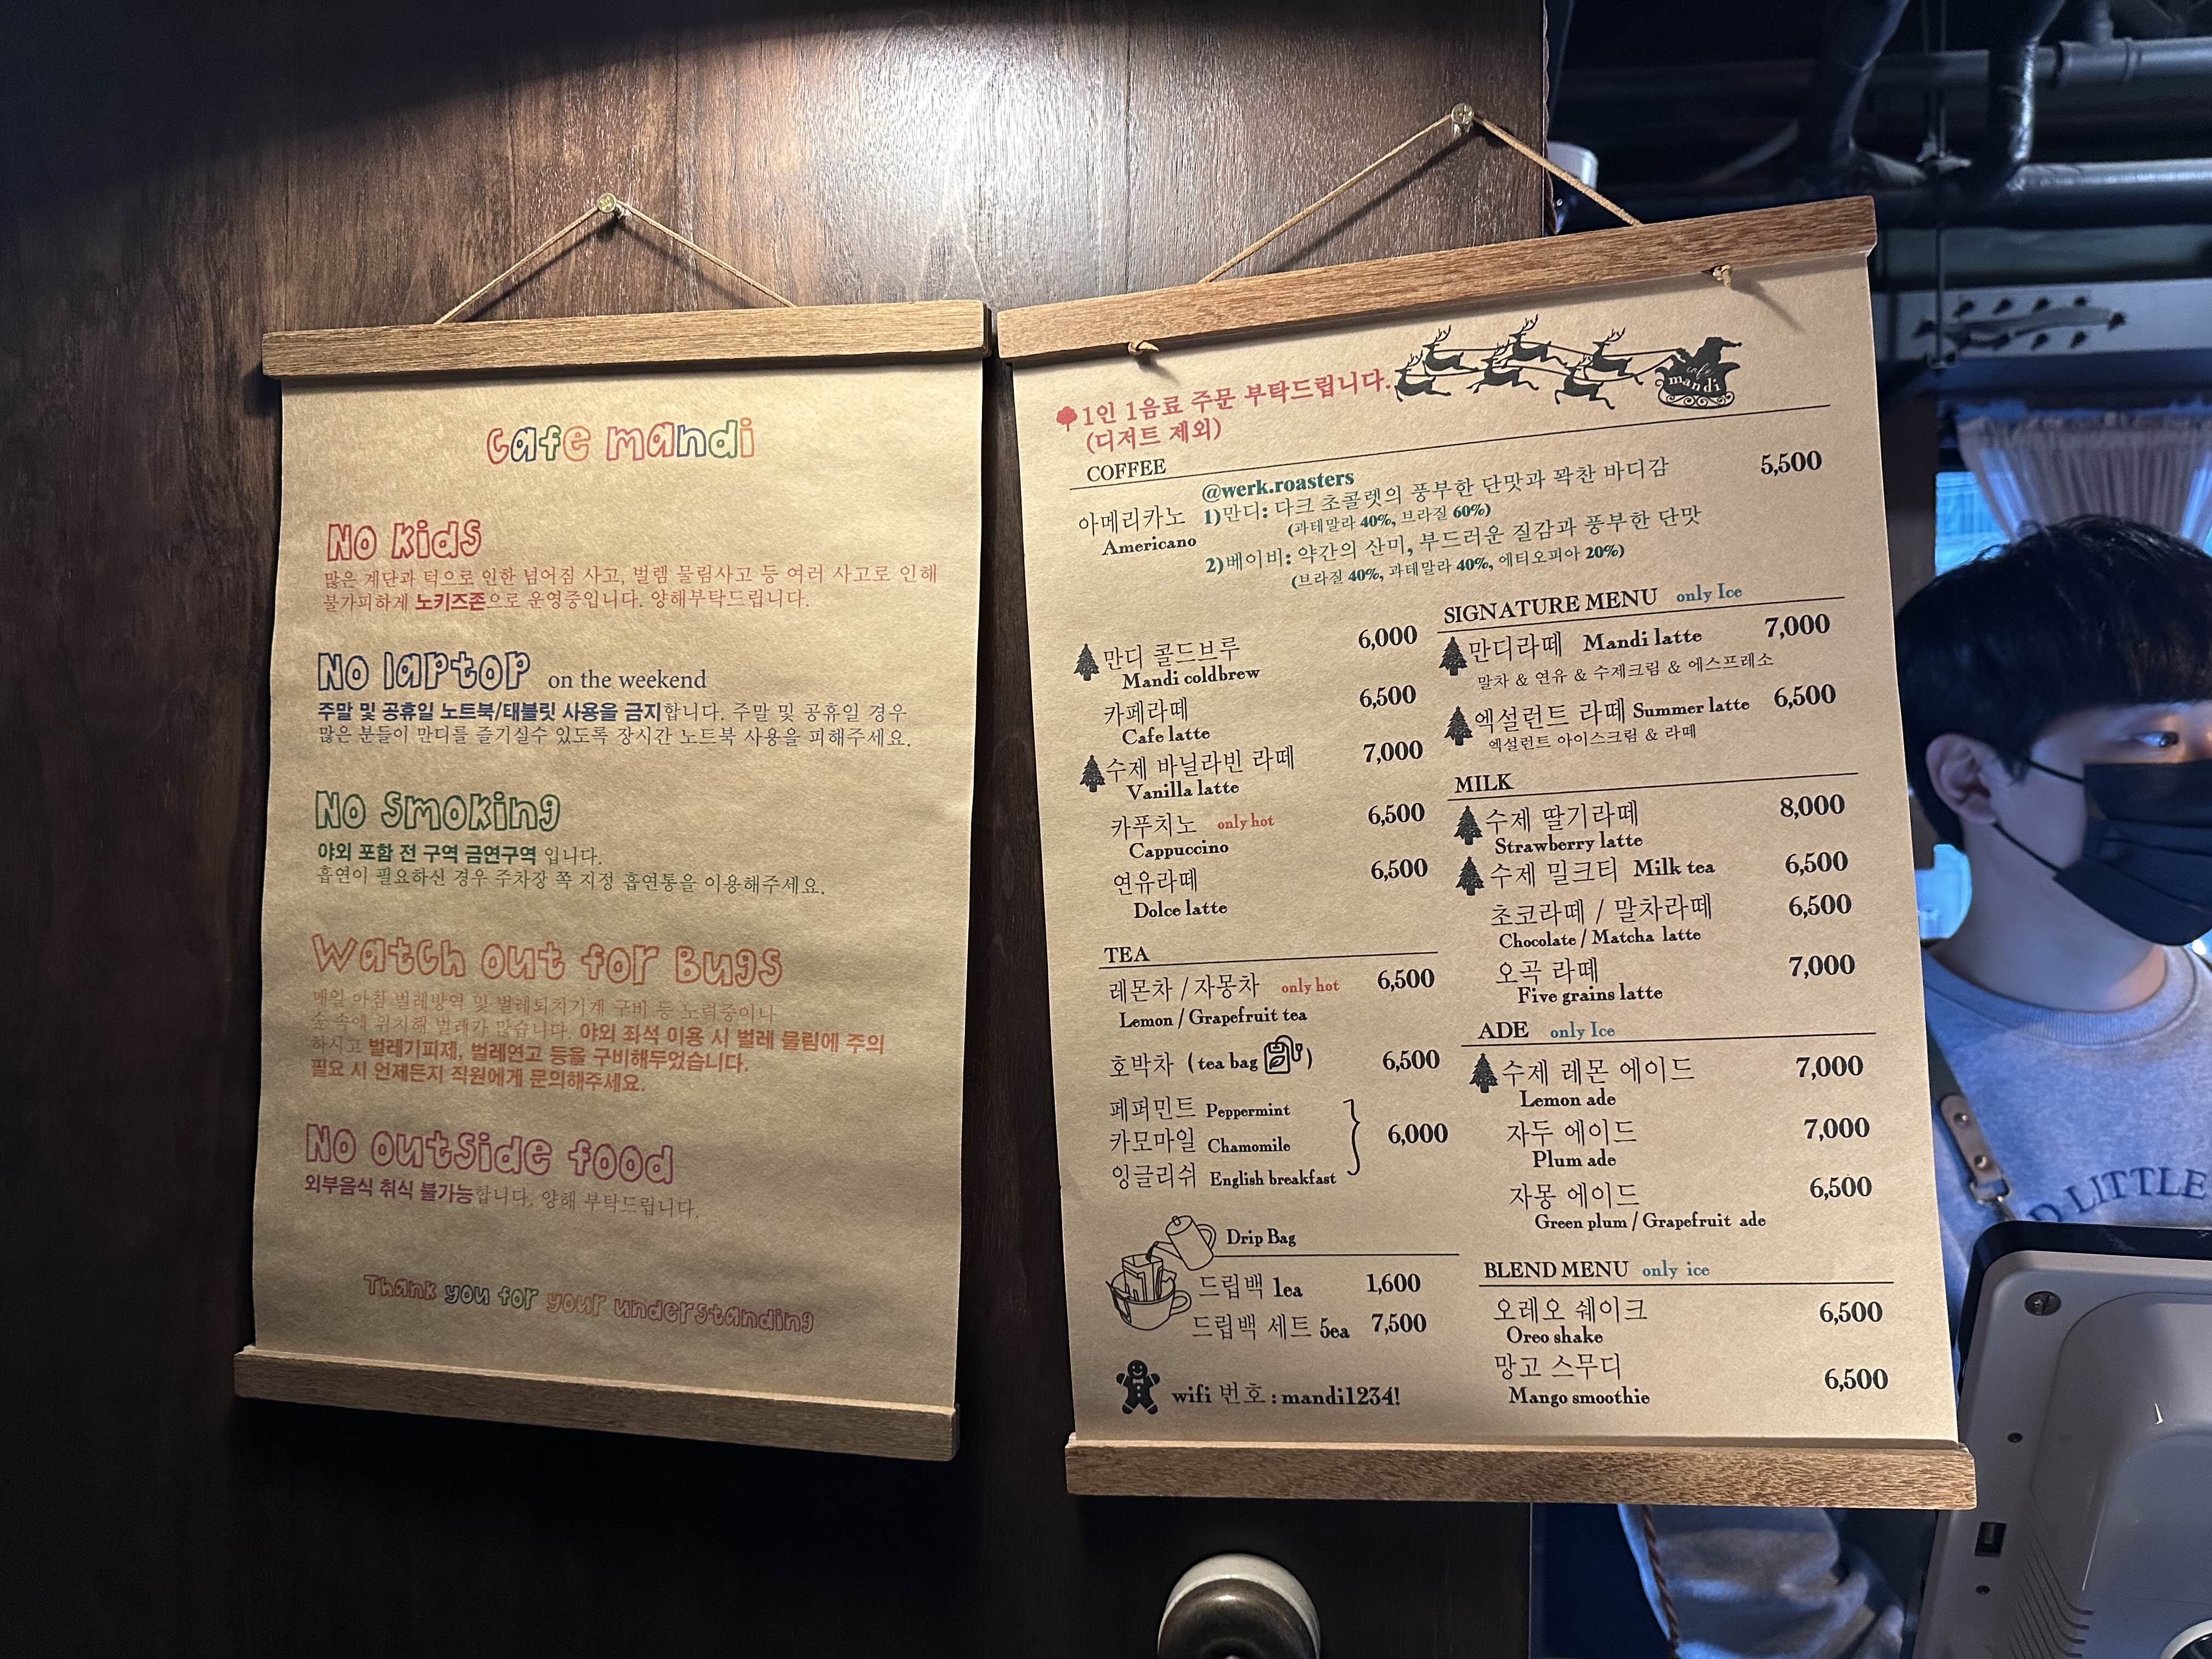 cafe mandi
No kids
많은 계단과 턱으로 인한 넘어짐 사고, 벌렘 물림사고 등 여러 사고로 인해
불가피하게 노키즈존으로 운영중입니다. 양해부탁드립니다.
No laptop on the weekend
주말 및 공휴일 노트북/태블릿 사용을 금지합니다. 주말 및 공휴일 경우
많은 분들이 만디를 즐기실수 있도록 장시간 노트북 사용을 피해주세요.
No smoking
야외 포함 전 구역 금연구역 입니다.
흡연이 필요하신 경우 주차장 쪽 지정 흡연통을 이용해주세요.
Watch out for Bugs
매일 아침 벌레방역 및 벌레퇴치기계 구비 등 노력중이나
숲 속에 위치해 벌레가 많습니다. 야외 좌석 이용 시 벌레 물림에 주의
하시고 벌레기피제, 벌레연고 등을 구비해두었습니다.
필요 시 언제든지 직원에게 문의해주세요.
No outside food
외부음식 취식 불가능합니다. 양해 부탁드립니다.
Thank you for your understanding
1인 1음료 주문 부탁드립니다.
(디저트 제외)
cafe
mandi
COFFEE
@werk.roasters
아메리카노 1)만디: 다크 초콜렛의 풍부한 단맛과 꽉찬 바디감 5,500
Americano (과테말라 40%, 브라질 60%)
2)베이비: 약간의 산미, 부드러운 질감과 풍부한 단맛
(브라질 40%, 과테말라 40%, 에티오피아 20%)
만디 콜드브루 6,000
Mandi coldbrew
카페라떼 6,500
Cafe latte
수제 바닐라빈 라떼 7,000
Vanilla latte
카푸치노 only hot 6,500
Cappuccino
연유라떼 6,500
Dolce latte
TEA
레몬차 / 자몽차 only hot 6,500
Lemon / Grapefruit tea
호박차 (tea bag) 6,500
페퍼민트 Peppermint
카모마일 Chamomile 6,000
잉글리쉬 English breakfast
Drip Bag
드립백 1ea 1,600
드립백 세트 5ea 7,500
wifi 번호 : mandi1234!
SIGNATURE MENU only Ice
만디라떼 Mandi latte 7,000
말차 & 연유 & 수제크림 & 에스프레소
엑설런트 라떼 Summer latte 6,500
엑설런트 아이스크림 & 라떼
MILK
수제 딸기라떼 8,000
Strawberry latte
수제 밀크티 Milk tea 6,500
초코라떼 / 말차라떼 6,500
Chocolate / Matcha latte
오곡 라떼 7,000
Five grains latte
ADE only Ice
수제 레몬 에이드 7,000
Lemon ade
자두 에이드 7,000
Plum ade
자몽 에이드 6,500
Green plum / Grapefruit ade
BLEND MENU only ice
오레오 쉐이크 6,500
Oreo shake
망고 스무디 6,500
Mango smoothie
D LITTLE